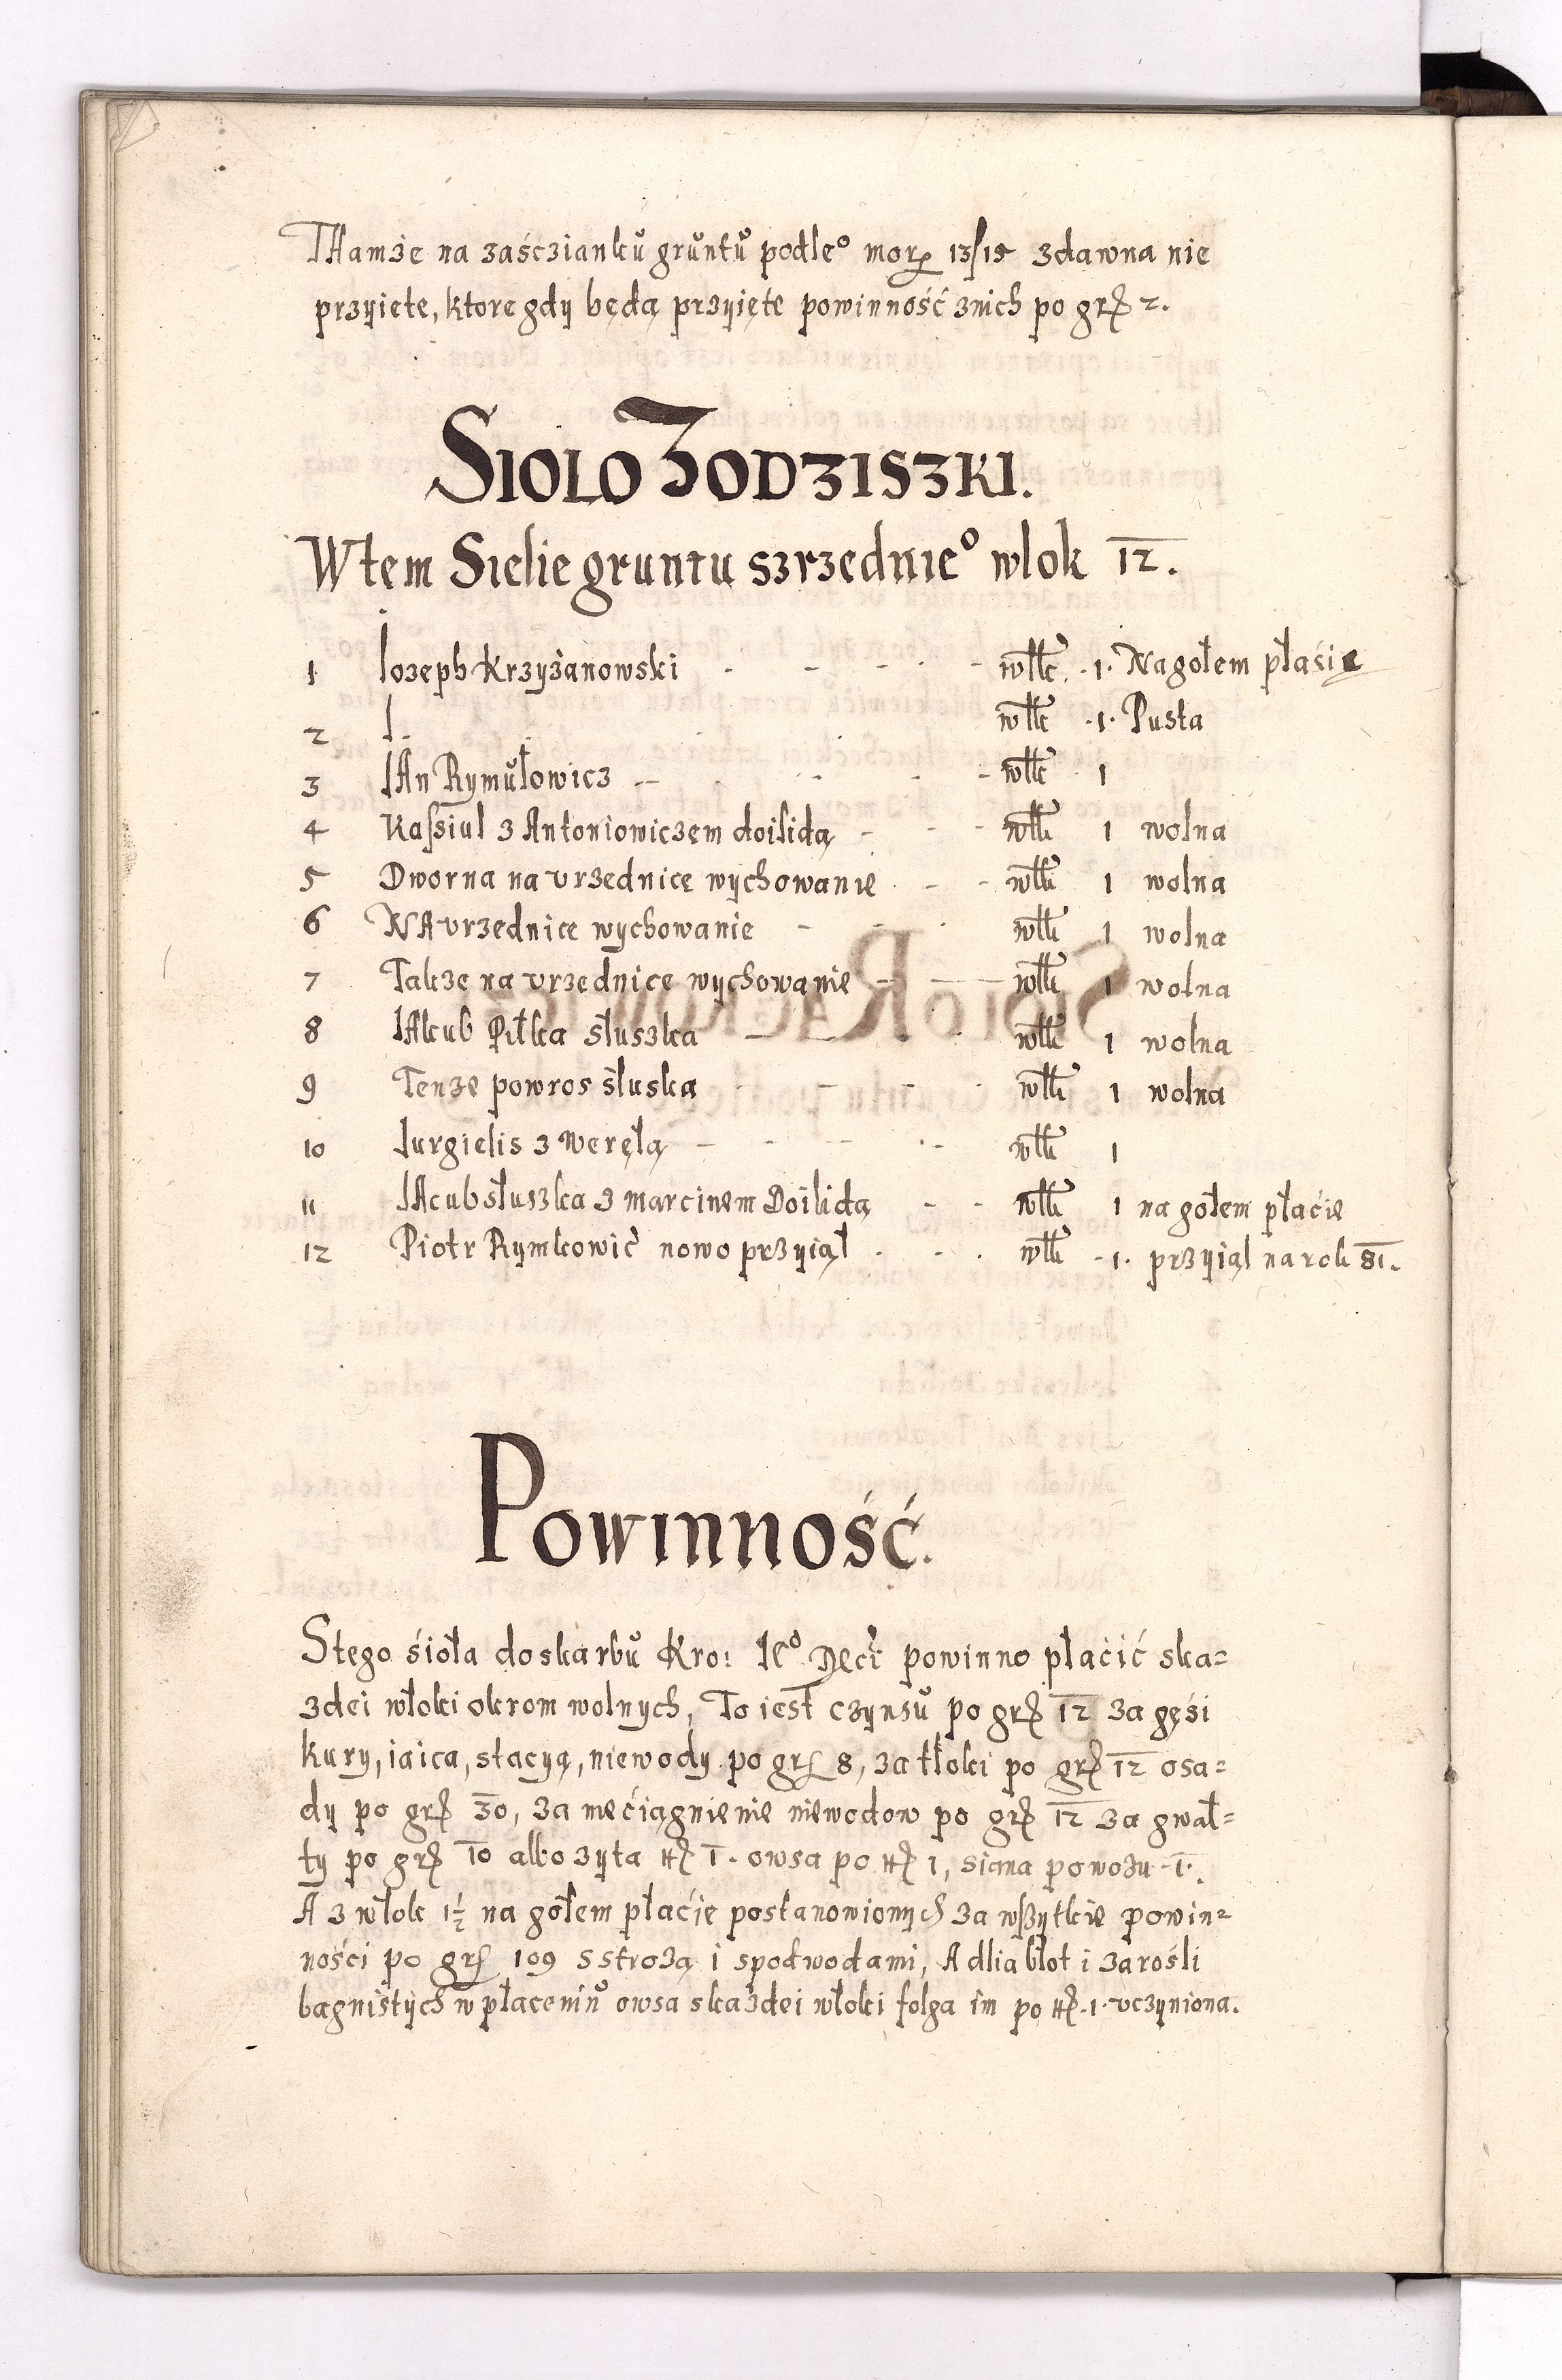 TAamże na zaścianku gruntu podłe° morg 13/15 zdawna nie
przyięte, ktore gdy będą przyięte powinność znich po grß 2.
SIOLO ZODZISZKI.
W tem Sielie gruntu szrzednie° wlok 12.
1 Iozeph Krzyżanowski - - - - włk 1. Na gołem płacie
2 I. włk .1. Pusta
3 IAn Rymułowicz - - - - włk 1
4 Kassiul z Antoniowiczem doilidą - - - włk 1 wolna
5 Dworna na vrzednice wychowanie - - włk 1 wolna
6 NA vrzednice wychowanie - - - włk 1 wolna
7 Takze na vrzednice wychowanie - - włk 1 wolna
8 IAkub Piłka słuszka - - włk 1 wolna
9 Tenze powros słuska - - - włk 1 wolna
10 Iurgielis z Weręłą - - - włk 1
11 IAcub słuszka z marcinem Doilidą - - włk 1 na gołem płacie
12 Piotr Rymkowić nowo przyiął . . . włk - 1. przyiął na rok 81.
Powinność.
Stego śioła do skarbu Kro: Ie° powinno płacić ska=
zdei włoki okrom wolnych, To iest czynsu po grß 12 za gęśi
kury, iaica, stacyą, niewody po grß 8, za tłoki po grß 12 osa=
dy po grß 30, za nieciągnienie niewodow po grß 12 za gwał=
ty po grß 10 albo zyta 1. owsa po 1, siana powozu 1.
A z włok 1½ na gołem płacie postanowionych za wszytkie powin=
ności po grß 109 s strożą i spodwodami, A dlia błot i zarośli
bagnistych w płaceniu owsa skazdei włoki folga im po 1. vczyniona.